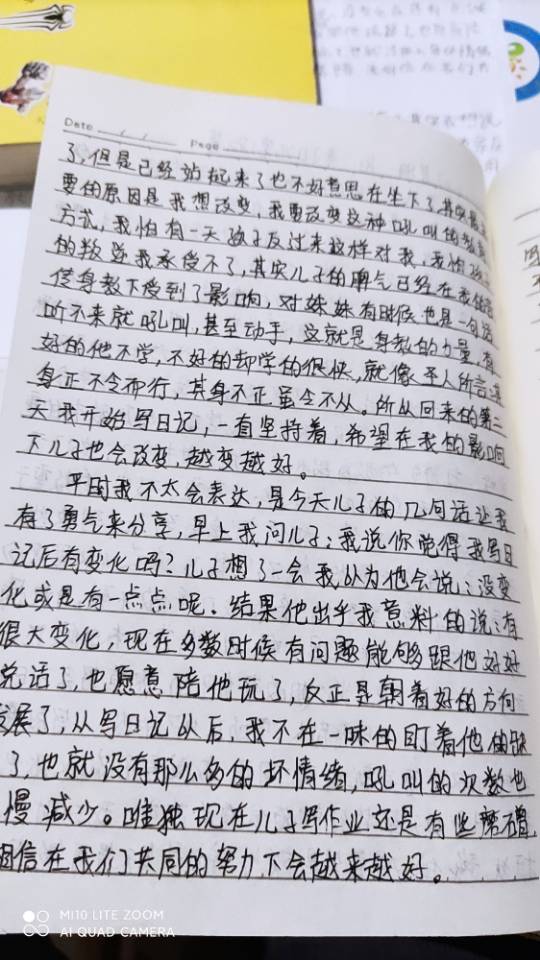 Date / / Page
了，但是已经站起来了也不好意思在坐下了，其实最
要的原因是我想改变，我要改变这种吼叫的教
方式，我怕有一天孩子反过来这样对我，我怕
的叛逆我承受不了，其实儿子的脾气已经在我的言
传身教下受到了影响，对妹妹有时候也是一句话
听不来就吼叫，甚至动手，这就是身教的力量，有
好的他不学，不好的却学的很快，就像圣人所言：其
身正不令而行，其身不正虽令不从。所以回来的第二
天我开始写日记，一直坚持着，希望在我的影响
下儿子也会改变，越变越好。
平时我不太会表达，是今天儿子的几句话让我
有了勇气来分享，早上我问儿子：我说你觉得我写日
记后有变化吗？儿子想了一会我以为他会说：没变
化或是有一点点呢。结果他出乎我意料的说：有
很大变化，现在多数时候有问题能够跟他好好
说话了，也愿意陪他玩了，反正是朝着好的方向
发展了，从写日记以后，我不在一味的盯着他的缺
了，也就没有那么多的坏情绪，吼叫的次数也
慢减少。唯独现在儿子写作业还是有些磨蹭，
相信在我们共同的努力下会越来越好。
MI 10 LITE ZOOM
AI QUAD CAMERA